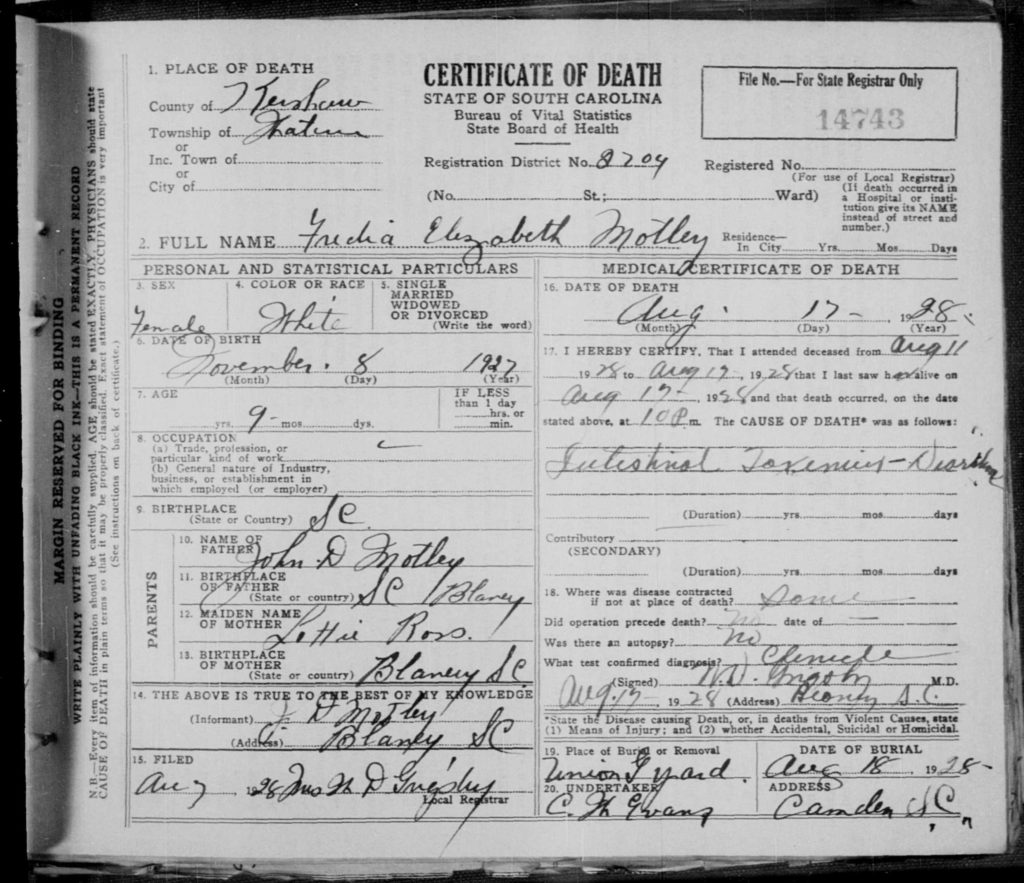 MARGIN RESERVED FOR BINDING
WRITE PLAINLY WITH UNFADING BLACK INK—THIS IS A PERMANENT RECORD
N.B.—Every item of information should be carefully supplied. AGE should be stated EXACTLY. PHYSICIANS should state
CAUSE OF DEATH in plain terms so that it may be properly classified. Exact statement of OCCUPATION is very important
(See instructions on back of certificate.)
CERTIFICATE OF DEATH
STATE OF SOUTH CAROLINA
Bureau of Vital Statistics
State Board of Health
File No.—For State Registrar Only
14743
1. PLACE OF DEATH
County of Kershaw
Township of
or
Inc. Town of
or
City of
Registration District No. 2709
Registered No.
(For use of Local Registrar)
(No. St.; Ward)
(If death occurred in
a Hospital or insti-
tution give its NAME
instead of street and
number.)
2. FULL NAME Fredia Elizabeth Motley
Residence—
In City Yrs. Mos. Days
PERSONAL AND STATISTICAL PARTICULARS
3. SEX
Female
4. COLOR OR RACE
White
5. SINGLE
MARRIED
WIDOWED
OR DIVORCED
(Write the word)
6. DATE OF BIRTH
November 8 1927
(Month) (Day) (Year)
7. AGE
yrs. 9 mos. dys.
IF LESS
than 1 day
hrs. or
min.
8. OCCUPATION
(a) Trade, profession, or
particular kind of work
(b) General nature of Industry,
business, or establishment in
which employed (or employer)
9. BIRTHPLACE
(State or Country) SC
PARENTS
10. NAME OF
FATHER John D Motley
11. BIRTHPLACE
OF FATHER
(State or country) SC Blaney
12. MAIDEN NAME
OF MOTHER
Lottie Ross.
13. BIRTHPLACE
OF MOTHER
(State or country) Blaney SC
14. THE ABOVE IS TRUE TO THE BEST OF MY KNOWLEDGE
(Informant) J D Motley
(Address) Blaney SC
15. FILED
1928 Mrs D Grigsby
Local Registrar
MEDICAL CERTIFICATE OF DEATH
16. DATE OF DEATH
Aug. 17 - 1928.
(Month) (Day) (Year)
17. I HEREBY CERTIFY, That I attended deceased from Aug 11
1928 to Aug 17, 1928 that I last saw her alive on
Aug 17 - 1928 and that death occurred, on the date
stated above, at 10 P. m. The CAUSE OF DEATH* was as follows:
Intestinal
(Duration) yrs. mos. days
Contributory
(SECONDARY)
(Duration) yrs. mos. days
18. Where was disease contracted
if not at place of death? Same
Did operation precede death? No date of —
Was there an autopsy? No
What test confirmed diagnosis?
(Signed) M.D.
Aug 17, 1928 (Address) S.C.
*State the Disease causing Death, or, in deaths from Violent Causes, state
(1) Means of Injury; and (2) whether Accidental, Suicidal or Homicidal.
19. Place of Burial or Removal
Union G yard.
DATE OF BURIAL
Aug 18 1928-
20. UNDERTAKER
Evans
ADDRESS
Camden S.C.